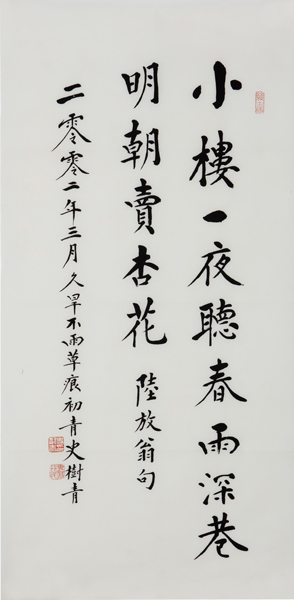 小樓一夜聽春雨深巷
明朝賣杏花 陸放翁句
二零零二年三月久旱不雨草痕初青史樹青